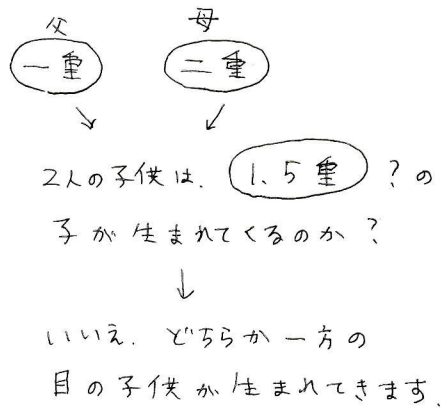 父 母
一重 二重
2人の子供は、1.5重?の
子が生まれてくるのか?
いいえ.どちらか一方の
目の子供が生まれてきます.